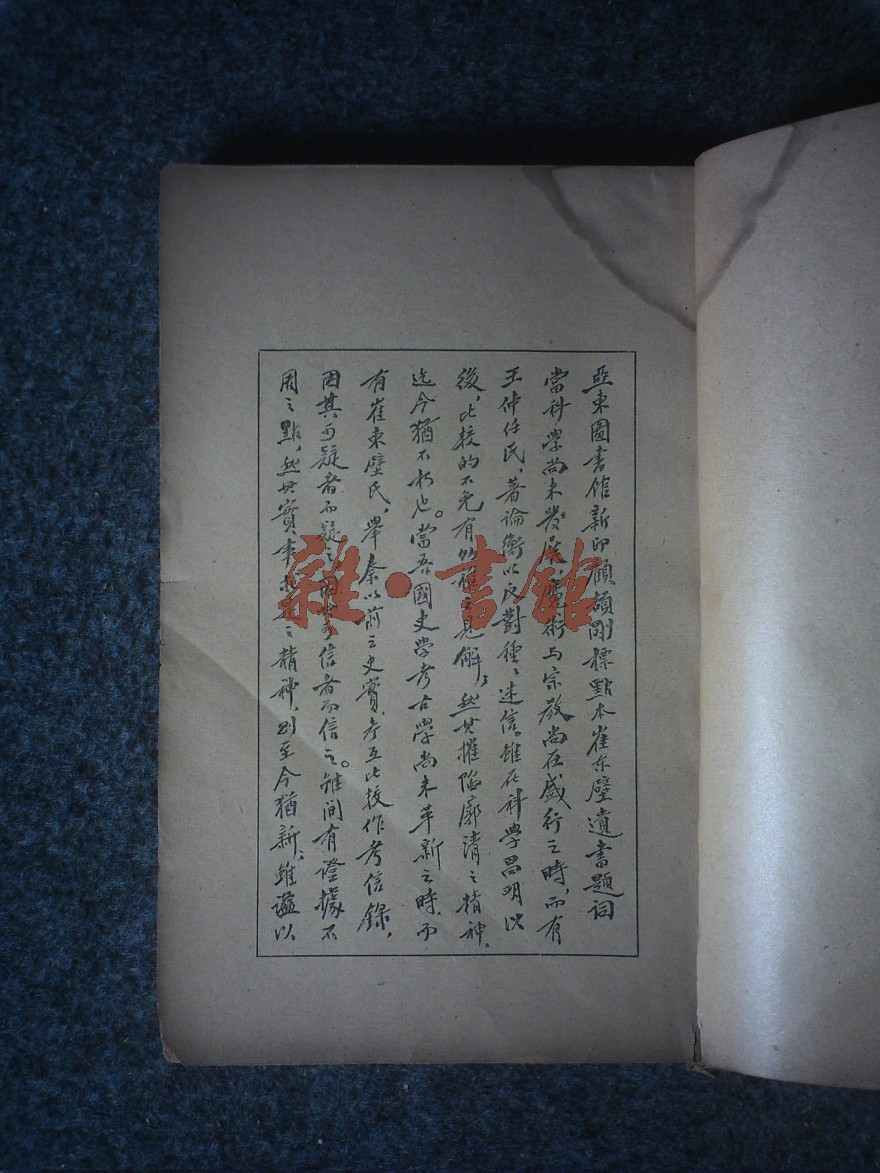 亞東圖書館新印顧頡剛標點本崔東壁遺書題詞
當科學尚未發展,魔術与宗教尚在盛行之時,而有
王仲任氏,著論衡以反對種種迷信。雖在科學昌明以
後,比校的不免有幼稚之見解;然其摧陷廓清之精神,
迄今猶不朽也。當吾國史學考古學尚未革新之時,而
有崔東壁氏,舉秦以前之史實,參互比校,作考信錄,
因其可疑者而疑之,因其可信者而信之。雖间有證據不
周之點,然其實事求是之精神,則至今猶新;雖謚以
雜·書館